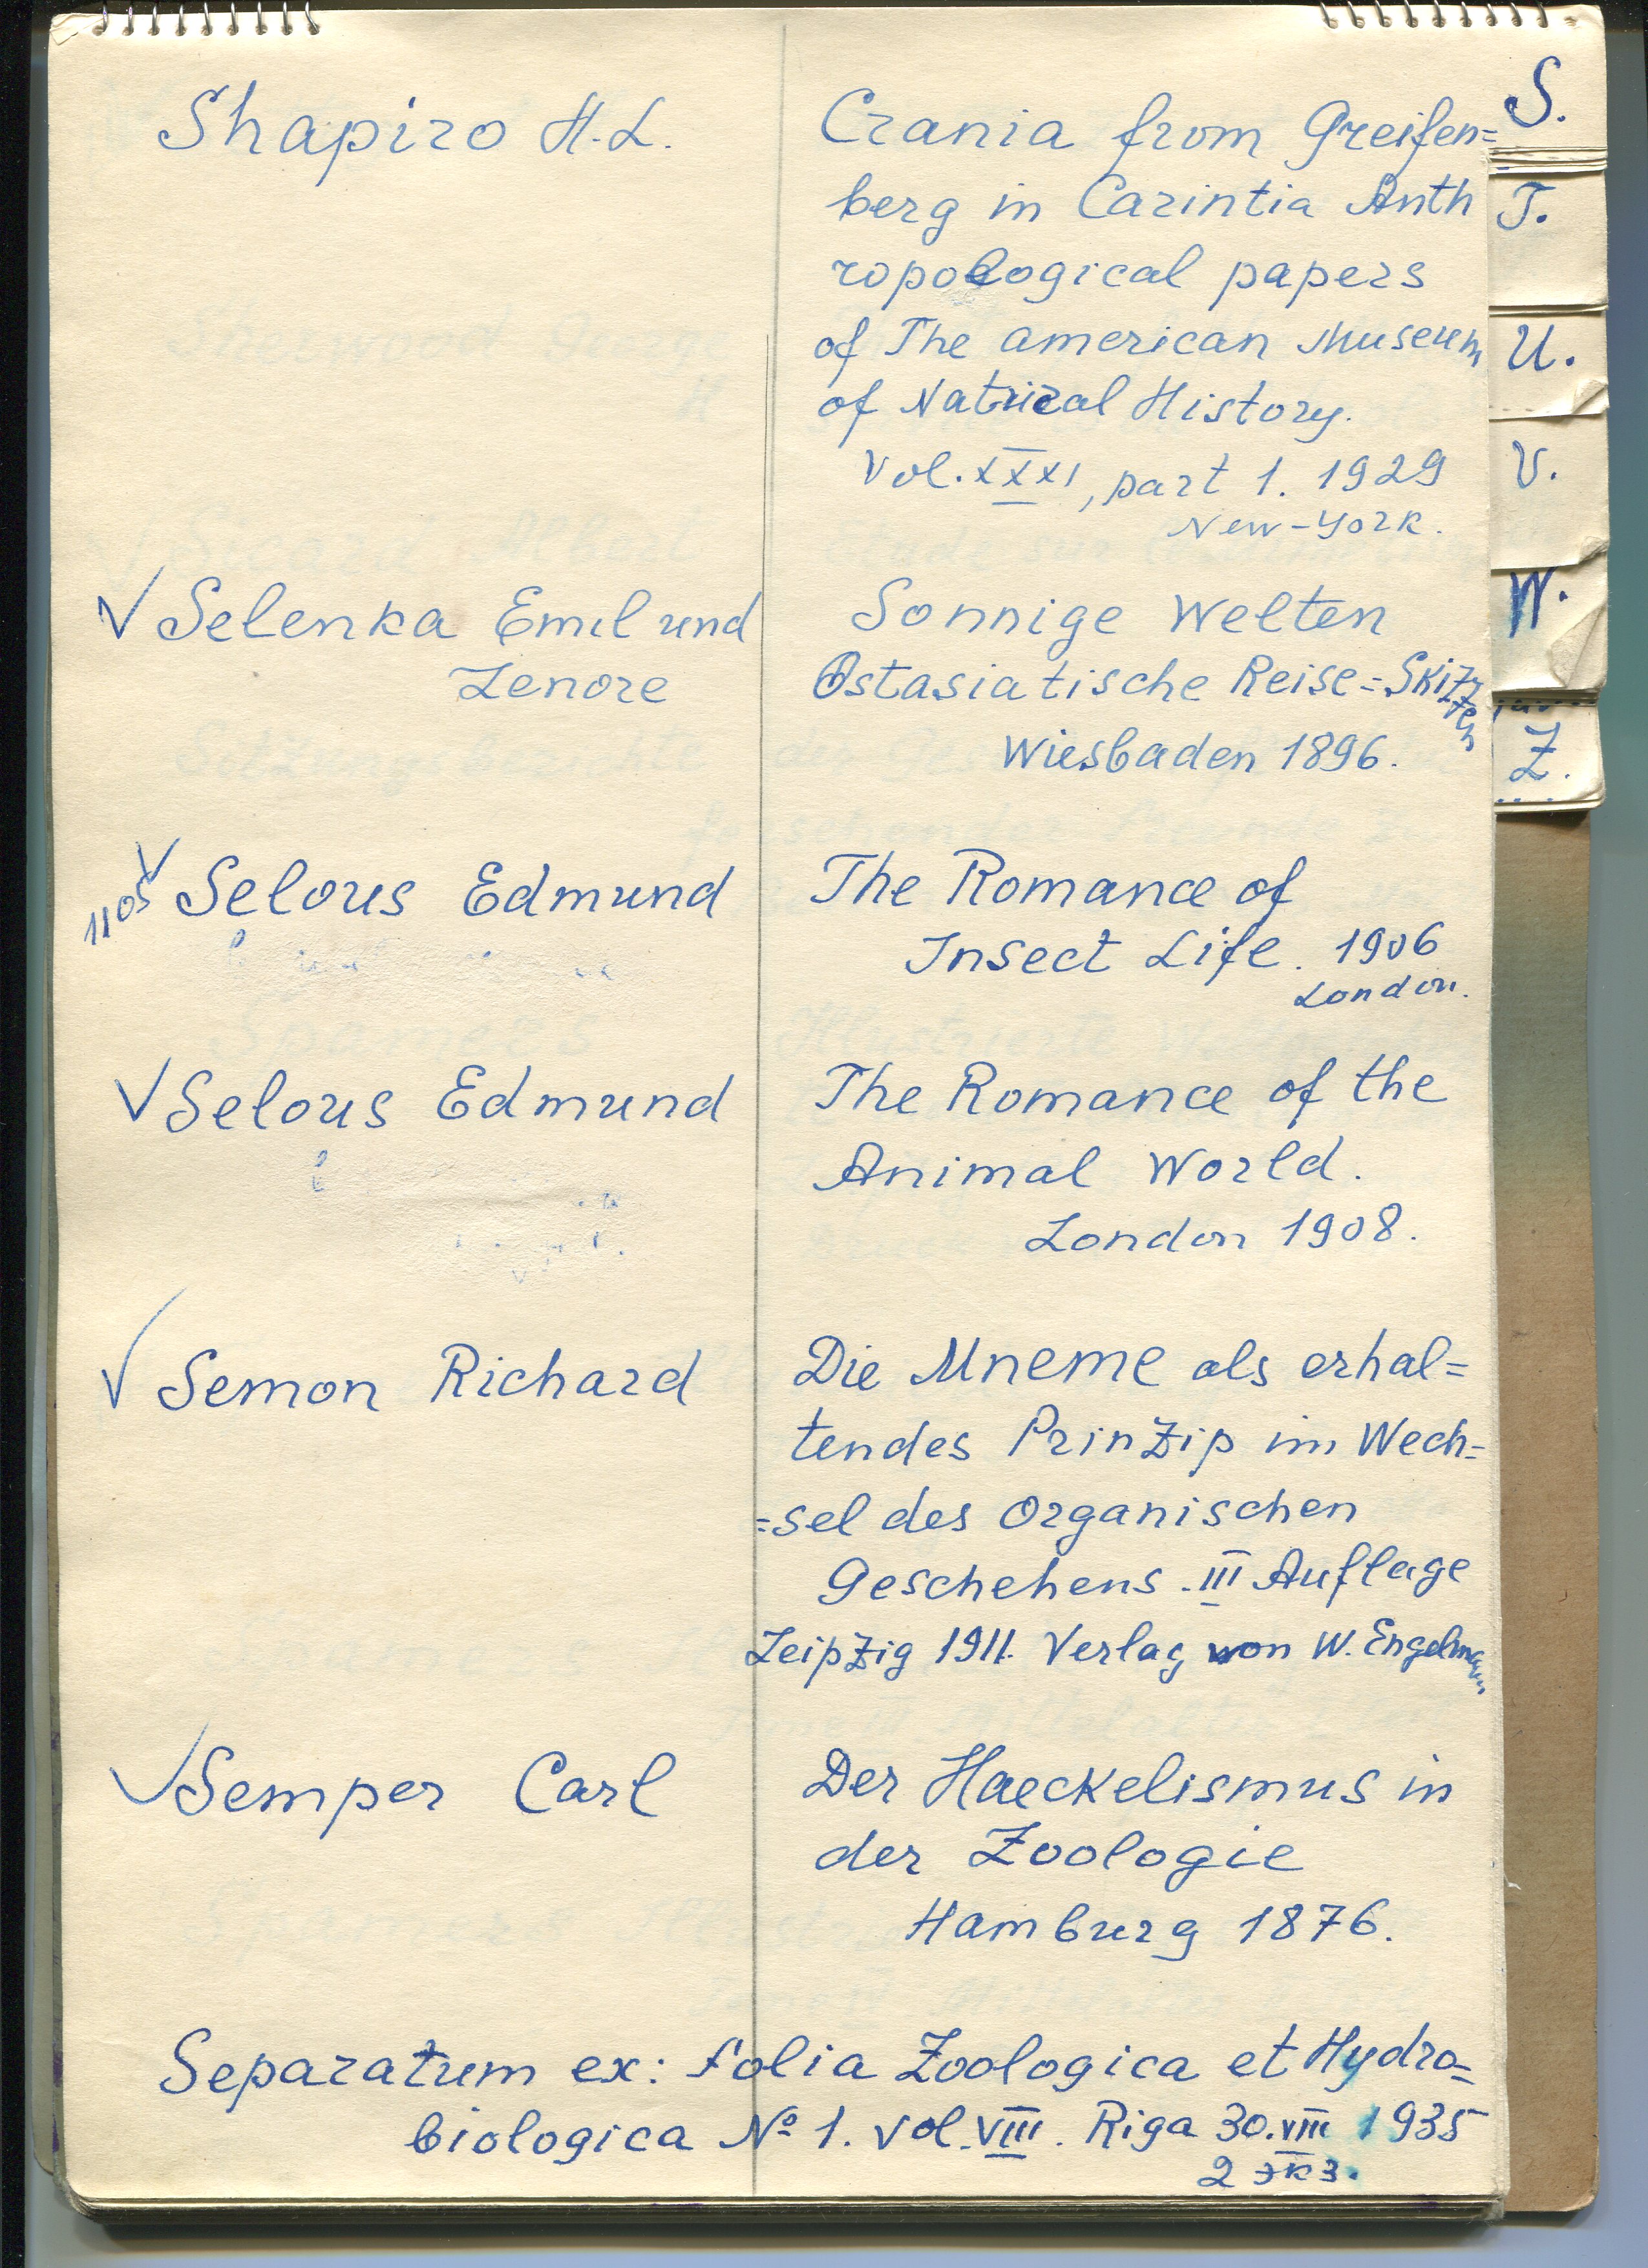 Shapiro H.L.
Crania from Greifen=
berg in Carintia Anth
ropological papers
of The american Museum
of Natural History.
Vol. XXXI, part 1. 1929
New-York.
√ Selenka Emil und
Lenore
Sonnige Welten
Ostasiatische Reise=Skizzen
Wiesbaden 1896.
1105 √ Selous Edmund
The Romance of
Insect Life. 1906
London.
√ Selous Edmund
The Romance of the
Animal World.
London 1908.
√ Semon Richard
Die Mneme als erhal=
tendes Prinzip im Wech=
=sel des Organischen
Geschehens. III Auflage
Leipzig 1911. Verlag von W. Engelmann
√ Semper Carl
Der Haeckelismus in
der Zoologie
Hamburg 1876.
Separatum ex: folia Zoologica et Hydro=
biologica № 1. vol. VIII. Riga 30.VIII 1935
2 экз.
S.
T.
U.
V.
W.
Z.